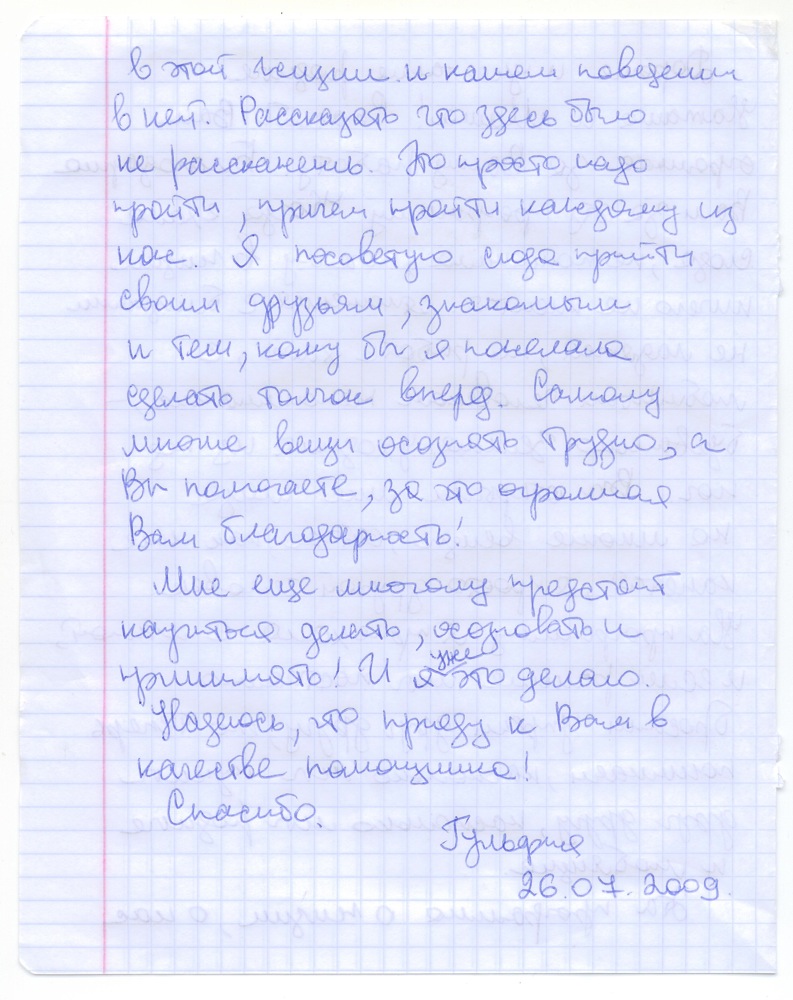 в этой жизни и нашем поведении
в ней. Рассказать что здесь было
не расскажешь. Это просто надо
пройти, причем пройти каждому из
нас. Я посоветую сюда прийти
своим друзьям, знакомым
и тем, кому бы я пожелала
сделать толчок вперед. Самому
многие вещи осознать трудно, а
Вы помогаете, за это огромная
Вам благодарность!
Мне еще многому предстоит
научиться делать, осозновать и
принимать! И я уже это делаю.
Надеюсь, что приеду к Вам в
качестве помощника!
Спасибо.
Гульфия
26.07.2009.